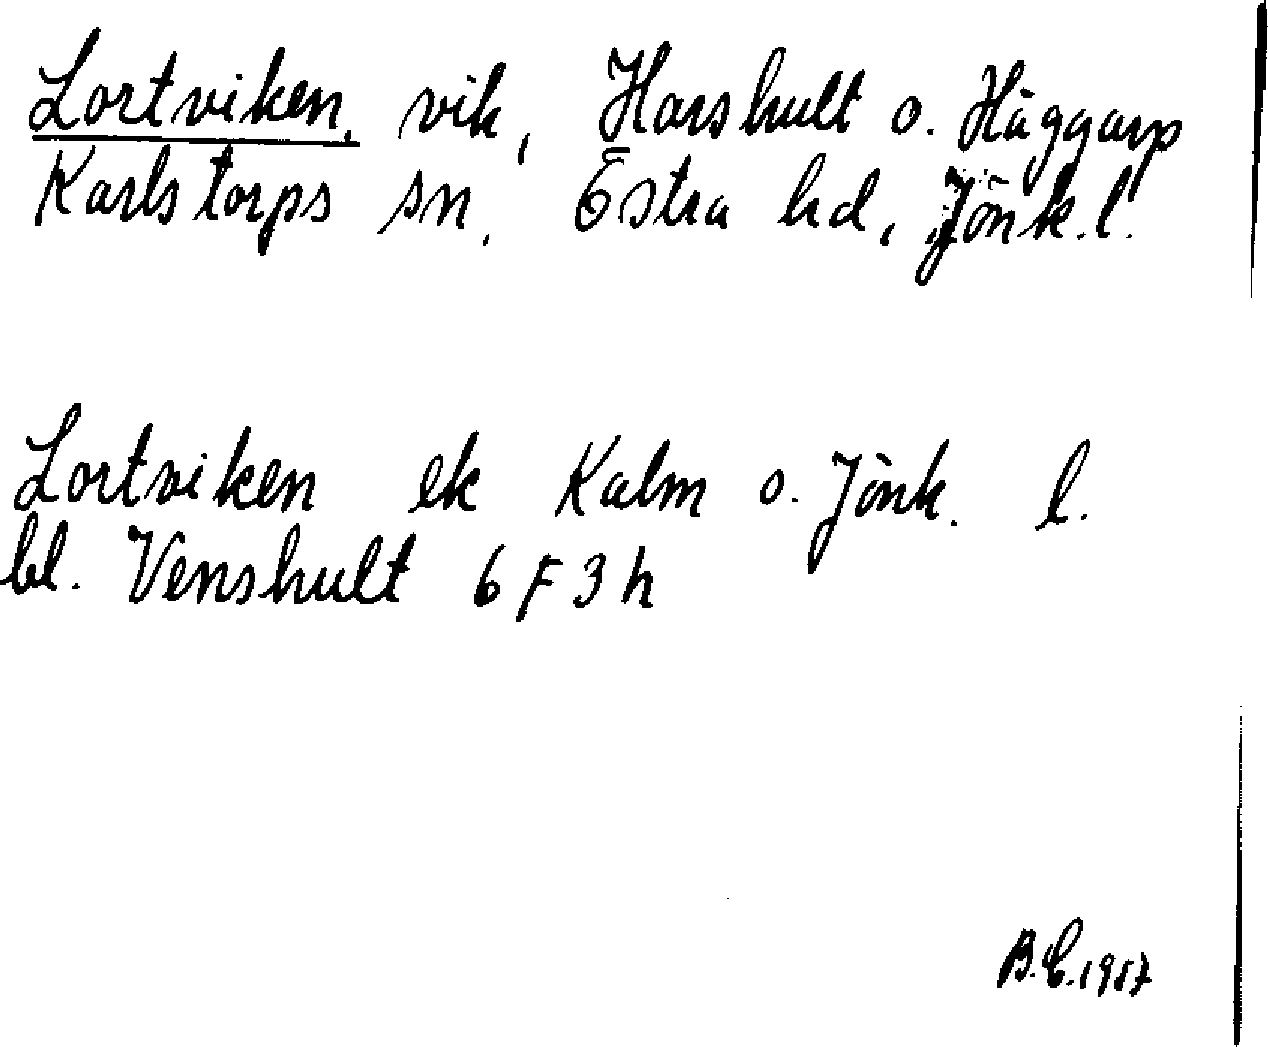 Lortviken, vik, Harshult o. Häggarp
Karlstorps sn. Östra hd, Jönk.l.
Lortviken ek Kalm o. Jönk. l.
bl. Venshult 6F3h
B.C.1957